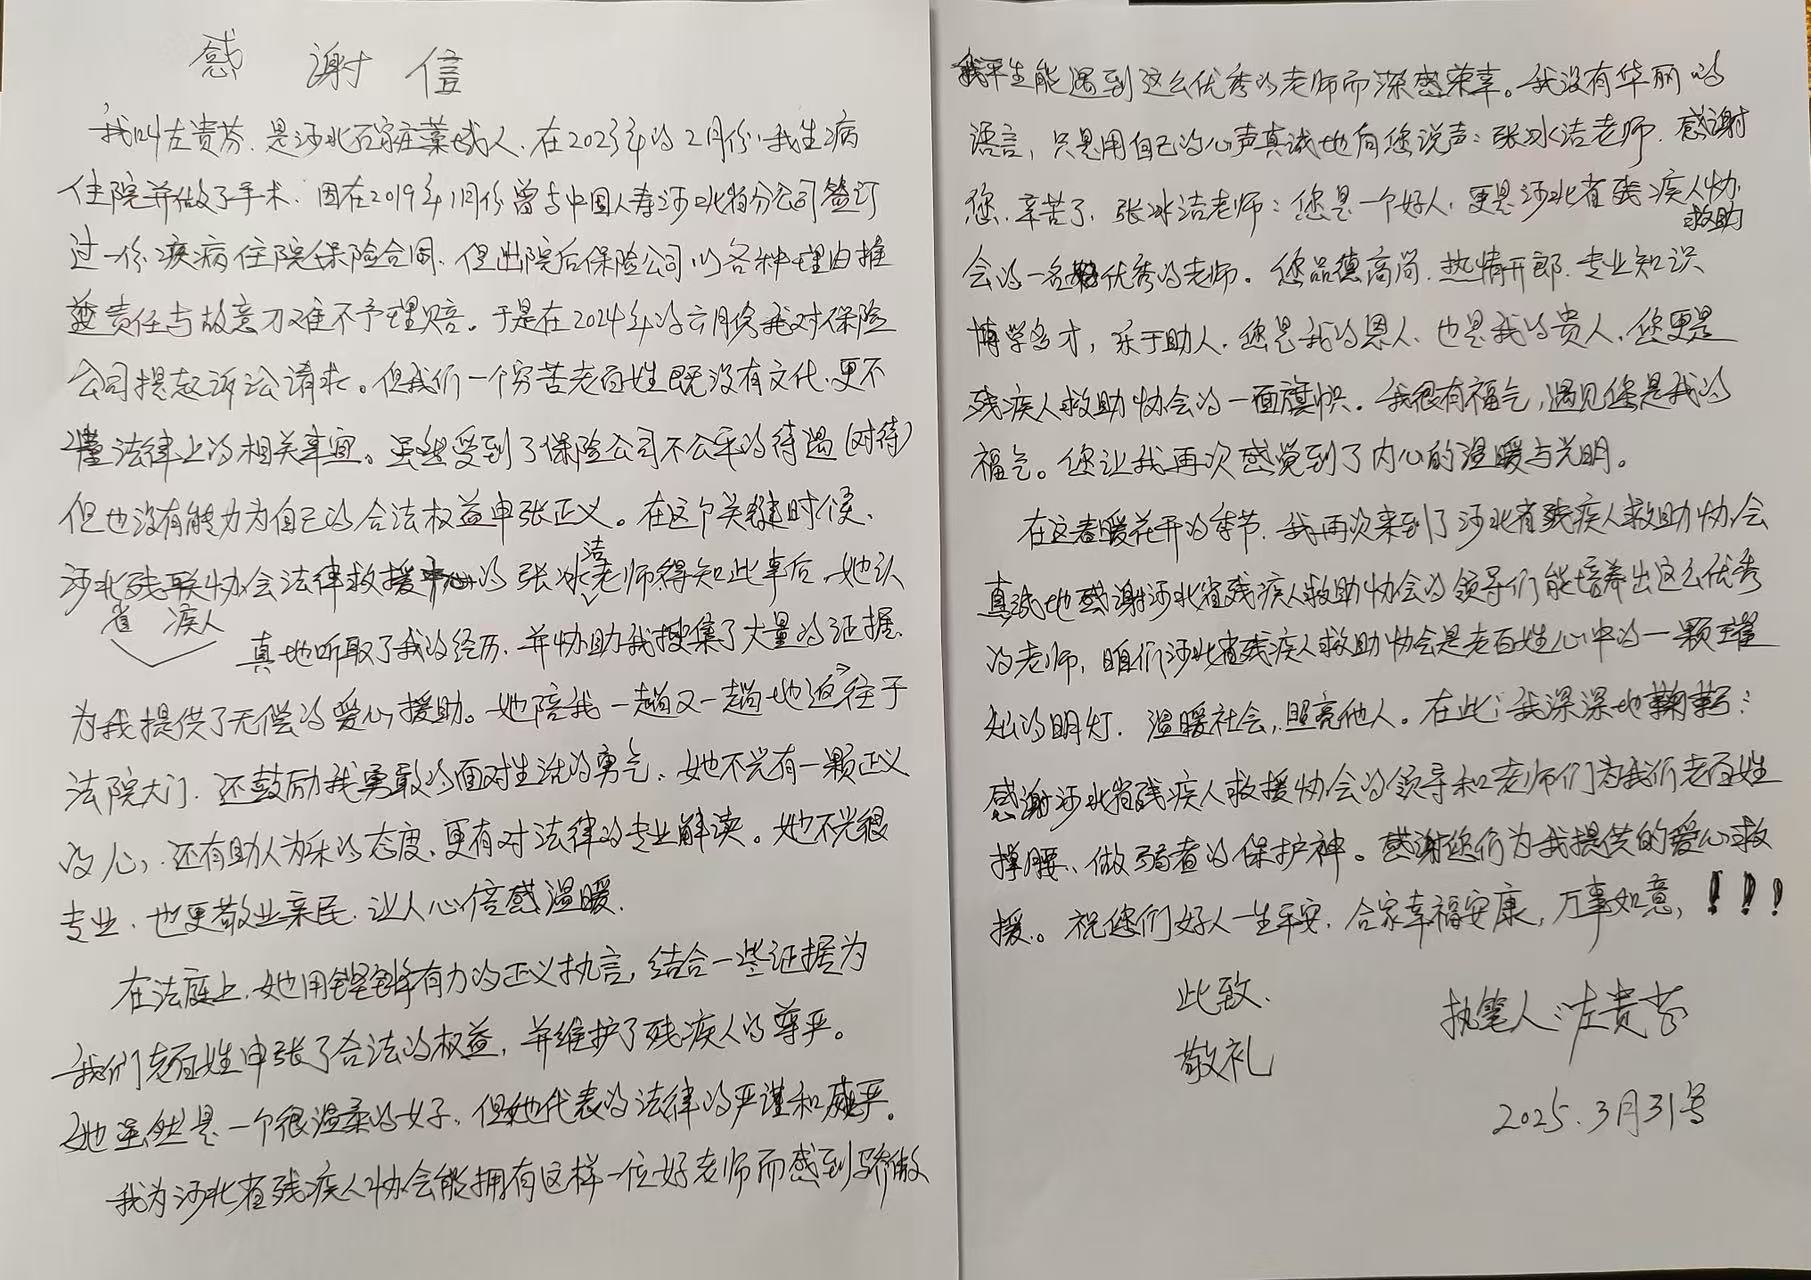 感谢信
我叫左贵芬,是河北石家庄藁城人,在2023年的2月份,我生病
住院并做了手术,因在2019年1月份曾与中国人寿河北省分公司签订
过一份疾病住院保险合同,但出院后保险公司以各种理由推
责任与故意刁难不予理赔。于是在2024年的六月份我对保险
公司提起诉讼请求。但我们一个穷苦老百姓既没有文化,更不
懂法律上的相关事宜。虽然受到了保险公司不公平的待遇(对待)
但也没有能力为自己的合法权益申张正义。在这个关键时候,
河北省残疾人协会法律救援中心的张冰洁老师得知此事后,她认
真地听取了我的经历,并协助我搜集了大量的证据,
为我提供了无偿的爱心援助。她陪我一趟又一趟地返往于
法院大门,还鼓励我勇敢的面对生活的勇气,她不光有一颗正义
的心,还有助人为乐的态度,更有对法律的专业解读。她不光很
专业,也更敬业亲民,让人心倍感温暖,
在法庭上,她用铿锵有力的正义执言,结合一些证据为
我们老百姓申张了合法的权益,并维护了残疾人的尊严。
她虽然是一个很温柔的女子,但她代表的法律的严谨和威严。
我为河北省残疾人协会能拥有这样一位好老师而感到骄傲
我平生能遇到这么优秀的老师而深感荣幸。我没有华丽的
语言,只是用自己的心声真诚地向您说声:张冰洁老师,感谢
您,辛苦了,张冰洁老师:您是一个好人,更是河北省残疾人救助协
会的一名优秀的老师。您品德高尚,热情开郎,专业知识
博学多才,乐于助人,您是我的恩人,也是我的贵人,您更是
残疾人救助协会的一面旗帜。我很有福气,遇见您是我的
福气。您让我再次感觉到了内心的温暖与光明。
在这春暖花开的季节,我再次来到了河北省残疾人救助协会
真诚地感谢河北省残疾人救助协会的领导们能培养出这么优秀
的老师,咱们河北省残疾人救助协会是老百姓心中的一颗璀
灿的明灯,温暖社会,照亮他人。在此:我深深地鞠躬:
感谢河北省残疾人救援协会的领导和老师们为我们老百姓
撑腰、做弱者的保护神。感谢您们为我提供的爱心救
援。祝您们好人一生平安,合家幸福安康,万事如意,!!!
此致、
敬礼
执笔人:左贵芬
2025.3月31号